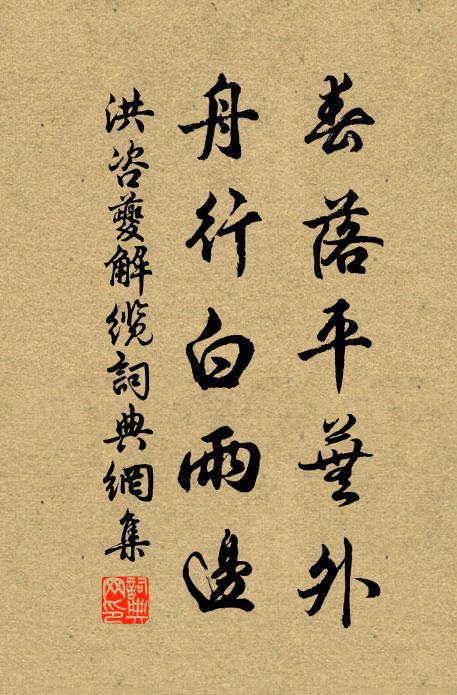 春落平蕪外
舟行白雨邊
洪咨夔解纜詞典網集
詞典網印